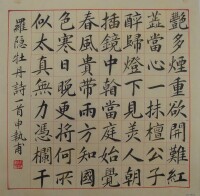 艷多煙重欲開難紅
蕊當心一抹檀公子
醉歸燈下見美人朝
插鏡中看當庭始覺
春風貴帶雨方知國
色寒日晚更將何所
似太真無力憑欄干
羅隱牡丹詩一首申執甫